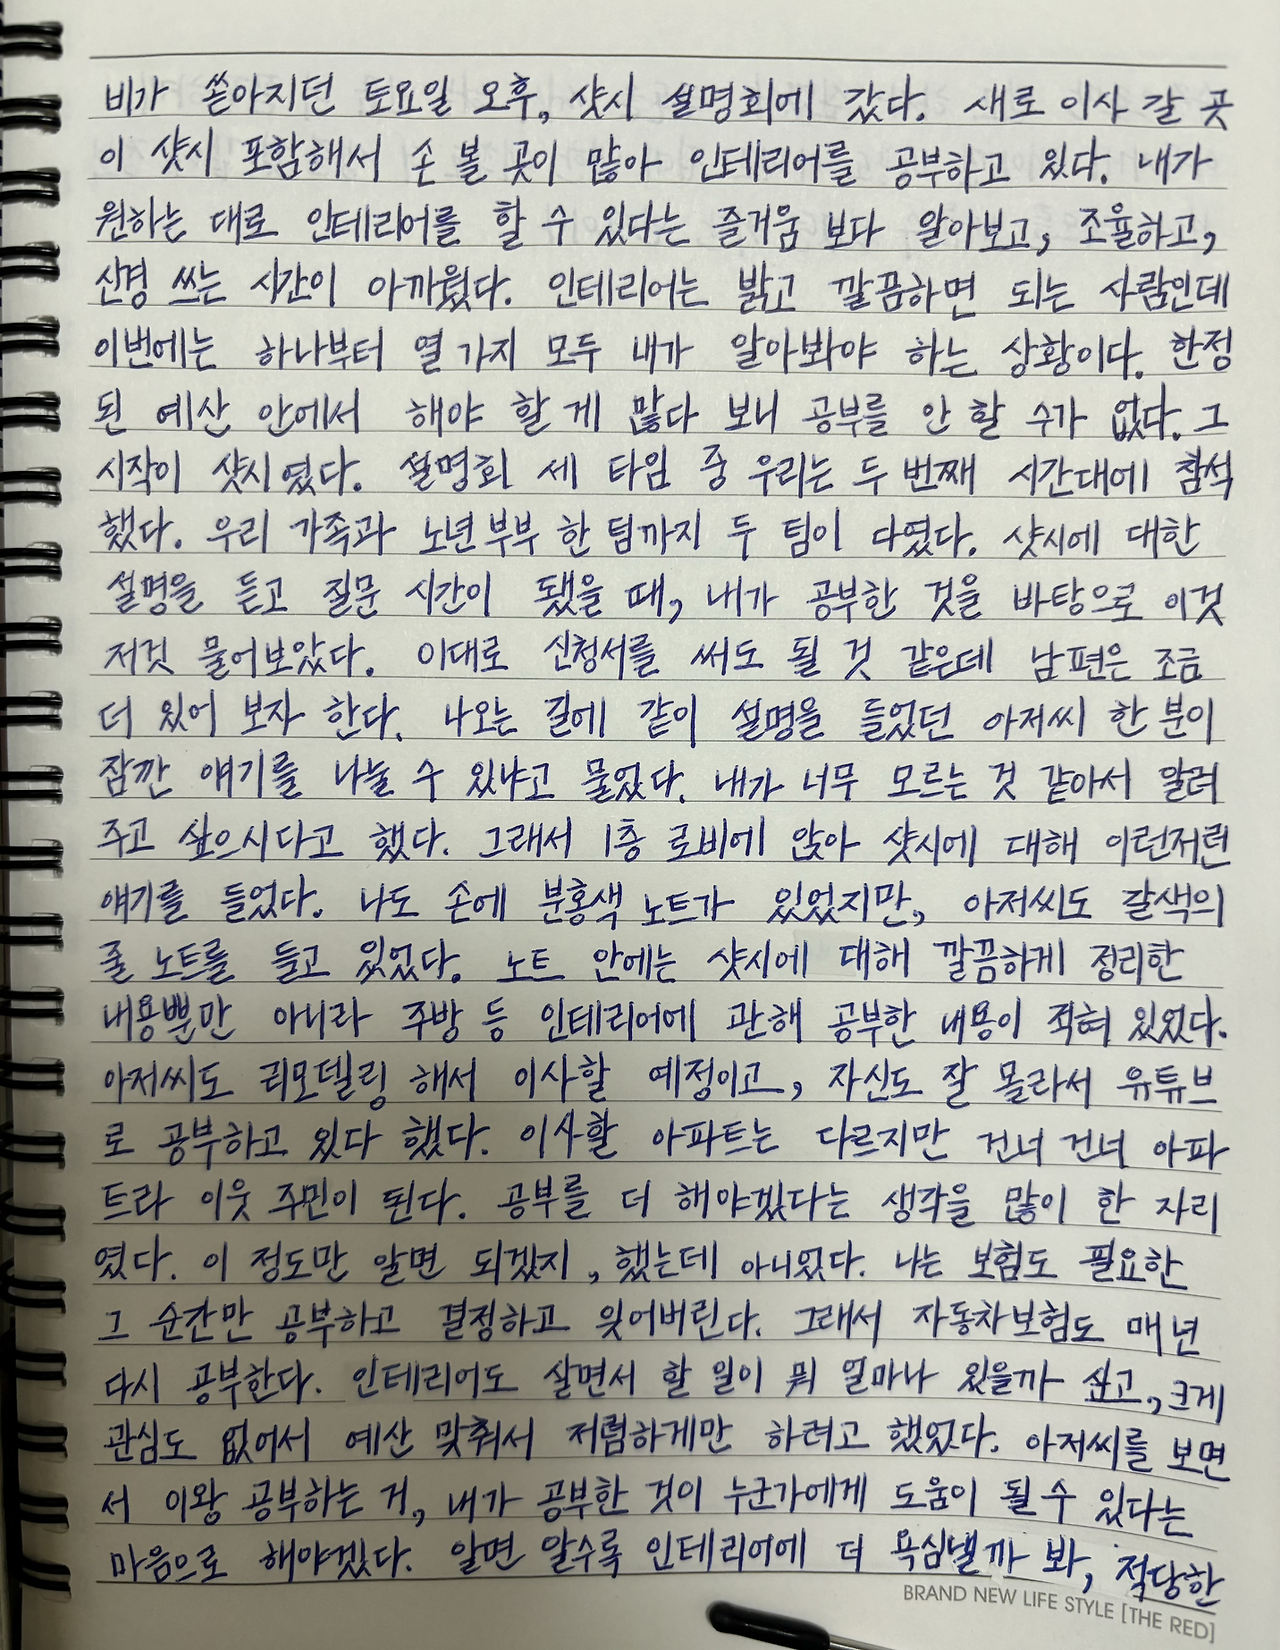 비가 쏟아지던 토요일 오후, 샷시 설명회에 갔다. 새로 이사 갈 곳
이 샷시 포함해서 손 볼 곳이 많아 인테리어를 공부하고 있다. 내가
원하는 대로 인테리어를 할 수 있다는 즐거움 보다 알아보고, 조율하고,
신경 쓰는 시간이 아까웠다. 인테리어는 밝고 깔끔하면 되는 사람인데
이번에는 하나부터 열 가지 모두 내가 알아봐야 하는 상황이다. 한정
된 예산 안에서 해야 할 게 많다 보니 공부를 안 할 수가 없다. 그
시작이 샷시였다. 설명회 세 타임 중 우리는 두 번째 시간대에 참석
했다. 우리 가족과 노년부부 한 팀까지 두 팀이 다였다. 샷시에 대한
설명을 듣고 질문 시간이 됐을 때, 내가 공부한 것을 바탕으로 이것
저것 물어보았다. 이대로 신청서를 써도 될 것 같은데 남편은 조금
더 있어 보자 한다. 나오는 길에 같이 설명을 들었던 아저씨 한 분이
잠깐 얘기를 나눌 수 있냐고 물었다. 내가 너무 모르는 것 같아서 알려
주고 싶으시다고 했다. 그래서 1층 로비에 앉아 샷시에 대해 이런저런
얘기를 들었다. 나도 손에 분홍색 노트가 있었지만, 아저씨도 갈색의
줄 노트를 들고 있었다. 노트 안에는 샷시에 대해 깔끔하게 정리한
내용뿐만 아니라 주방 등 인테리어에 관해 공부한 내용이 적혀 있었다.
아저씨도 리모델링 해서 이사할 예정이고, 자신도 잘 몰라서 유튜브
로 공부하고 있다 했다. 이사할 아파트는 다르지만 건너 건너 아파
트라 이웃 주민이 된다. 공부를 더 해야겠다는 생각을 많이 한 자리
였다. 이 정도만 알면 되겠지, 했는데 아니었다. 나는 보험도 필요한
그 순간만 공부하고 결정하고 잊어버린다. 그래서 자동차보험도 매년
다시 공부한다. 인테리어도 살면서 할 일이 뭐 얼마나 있을까 싶고, 크게
관심도 없어서 예산 맞춰서 저렴하게만 하려고 했었다. 아저씨를 보면
서 이왕 공부하는 거, 내가 공부한 것이 누군가에게 도움이 될 수 있다는
마음으로 해야겠다. 알면 알수록 인테리어에 더 욕심낼까 봐, 적당한
BRAND NEW LIFE STYLE [THE RED]